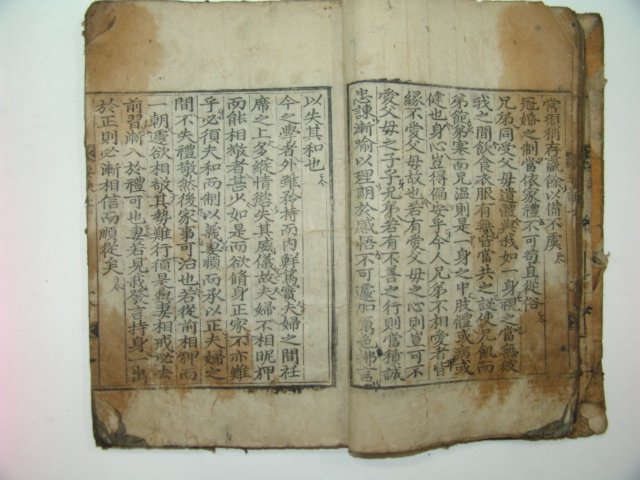 常須稍存贏餘以備不虞
冠婚之制當依家禮不可苟且從俗
兄弟同受父母遺體與我如一身視之當無彼
我之間飮食衣服有無皆當共之設使兄飢而
弟飽弟寒而兄溫則是一身之中肢體或病或
健也身心豈得偏安乎今人兄弟不相愛者皆
緣不愛父母故也若有愛父母之心則豈可不
愛父母之子乎兄弟若有不善之行則當積誠
忠諫漸喩以理期於感悟不可遽加厲色拂言
以失其和也
今之學者外雖矜持而內鮮篤實夫婦之間衽
席之上多縱情慾失其威儀故夫婦不相昵狎
而能相敬者甚少如是而欲修身正家不亦難
乎必須夫和而制以義妻順而承以正夫婦之
間不失禮敬然後家事可治也若從前相狎而
一朝遽欲相敬其勢難行須是與妻相戒必去
前習漸入於禮可也妻若見我發言持身一出
於正則必漸相信而順從矣